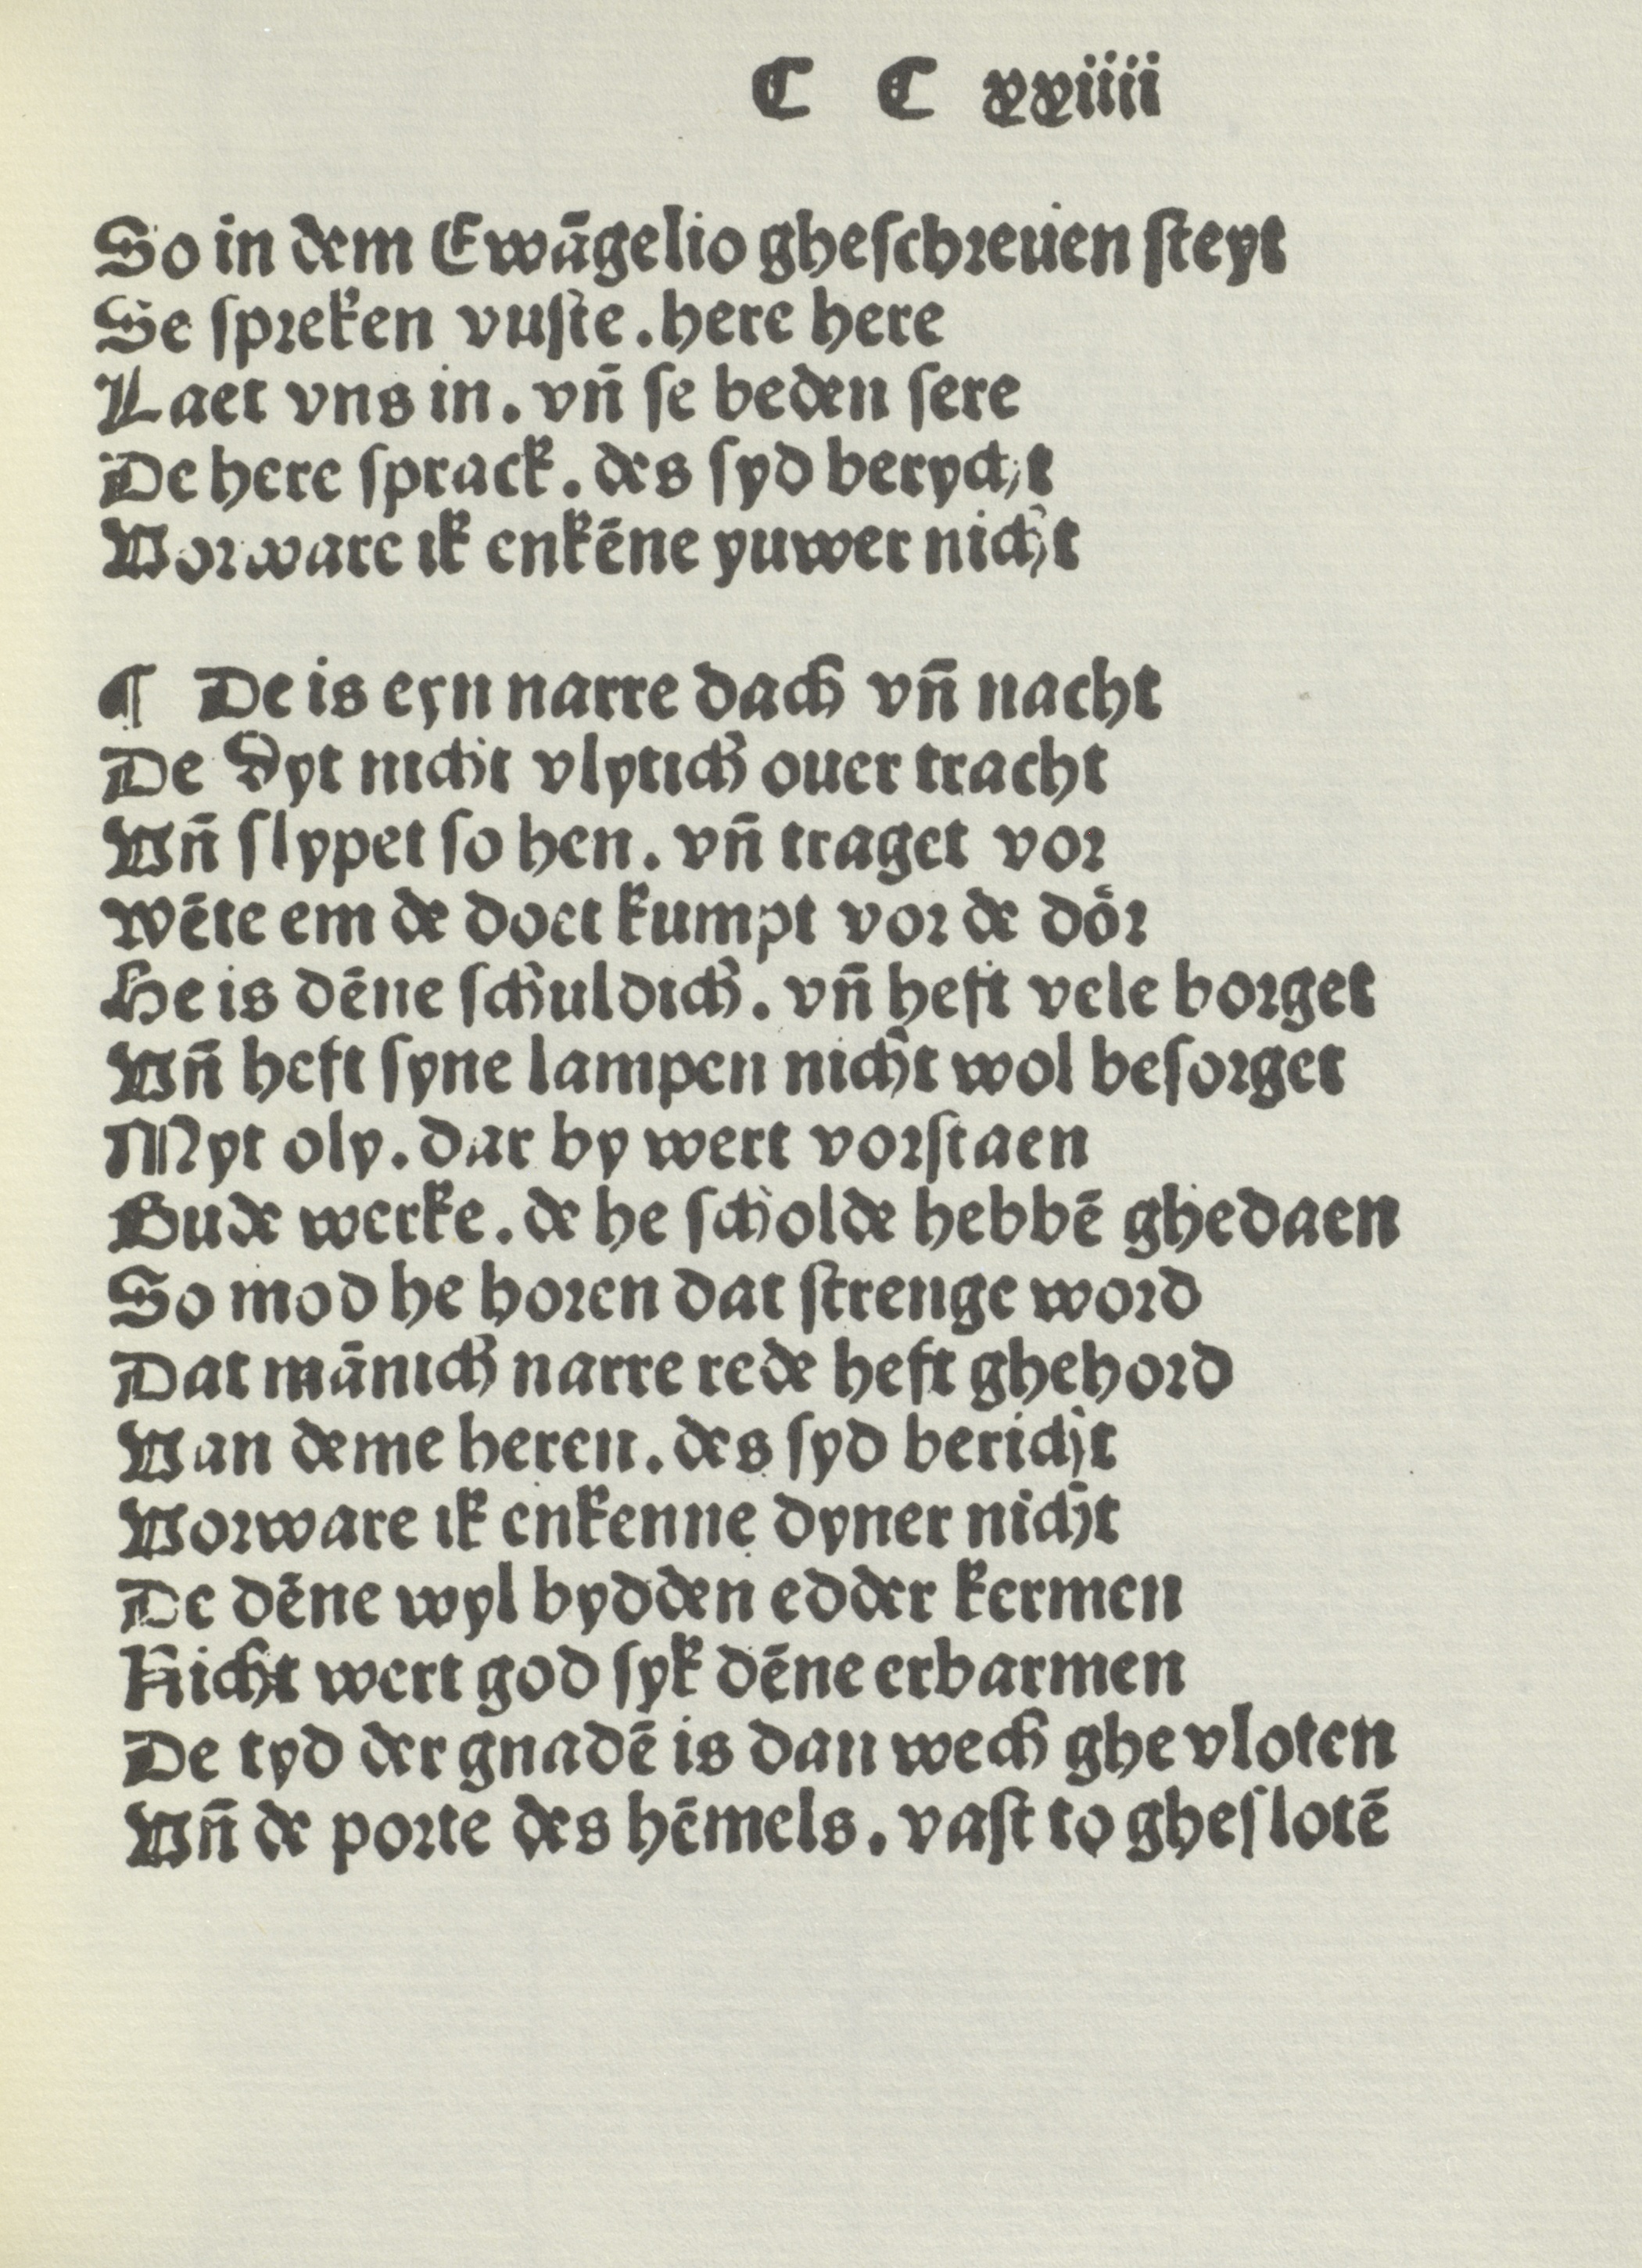 C C xxiiii
So in dem Ewāgelio gheſchreuen ſteyt
Se ſpreken vuſte. here here
Laet vns in. vn̄ ſe beden ſere
De here ſprack. des ſyd berycht
Vorware ik enkēne yuwer nicht
¶ De is eyn narre dach vn̄ nacht
De Dyt nicht vlytich ouer tracht
Vn̄ ſlypet ſo hen. vn̄ traget vor
Wēte em de doet kumpt vor de doͤr
He is dēne ſchuldich. vn̄ heft vele borget
Vn̄ heft ſyne lampen nicht wol beſorget
Myt oly. dar by wert vorſtaen
Gude werke. de he ſcholde hebbē ghedaen
So mod he horen dat ſtrenge word
Dat mānich narre rede heft ghehord
Van deme heren. des ſyd bericht
Vorware ik enkenne dyner nicht
De dēne wyl bydden edder kermen
Nicht wert god ſyk dēne erbarmen
De tyd der gnadē is dan wech ghe vloten
Vn̄ de porte des hēmels. vaſt to gheſlotē